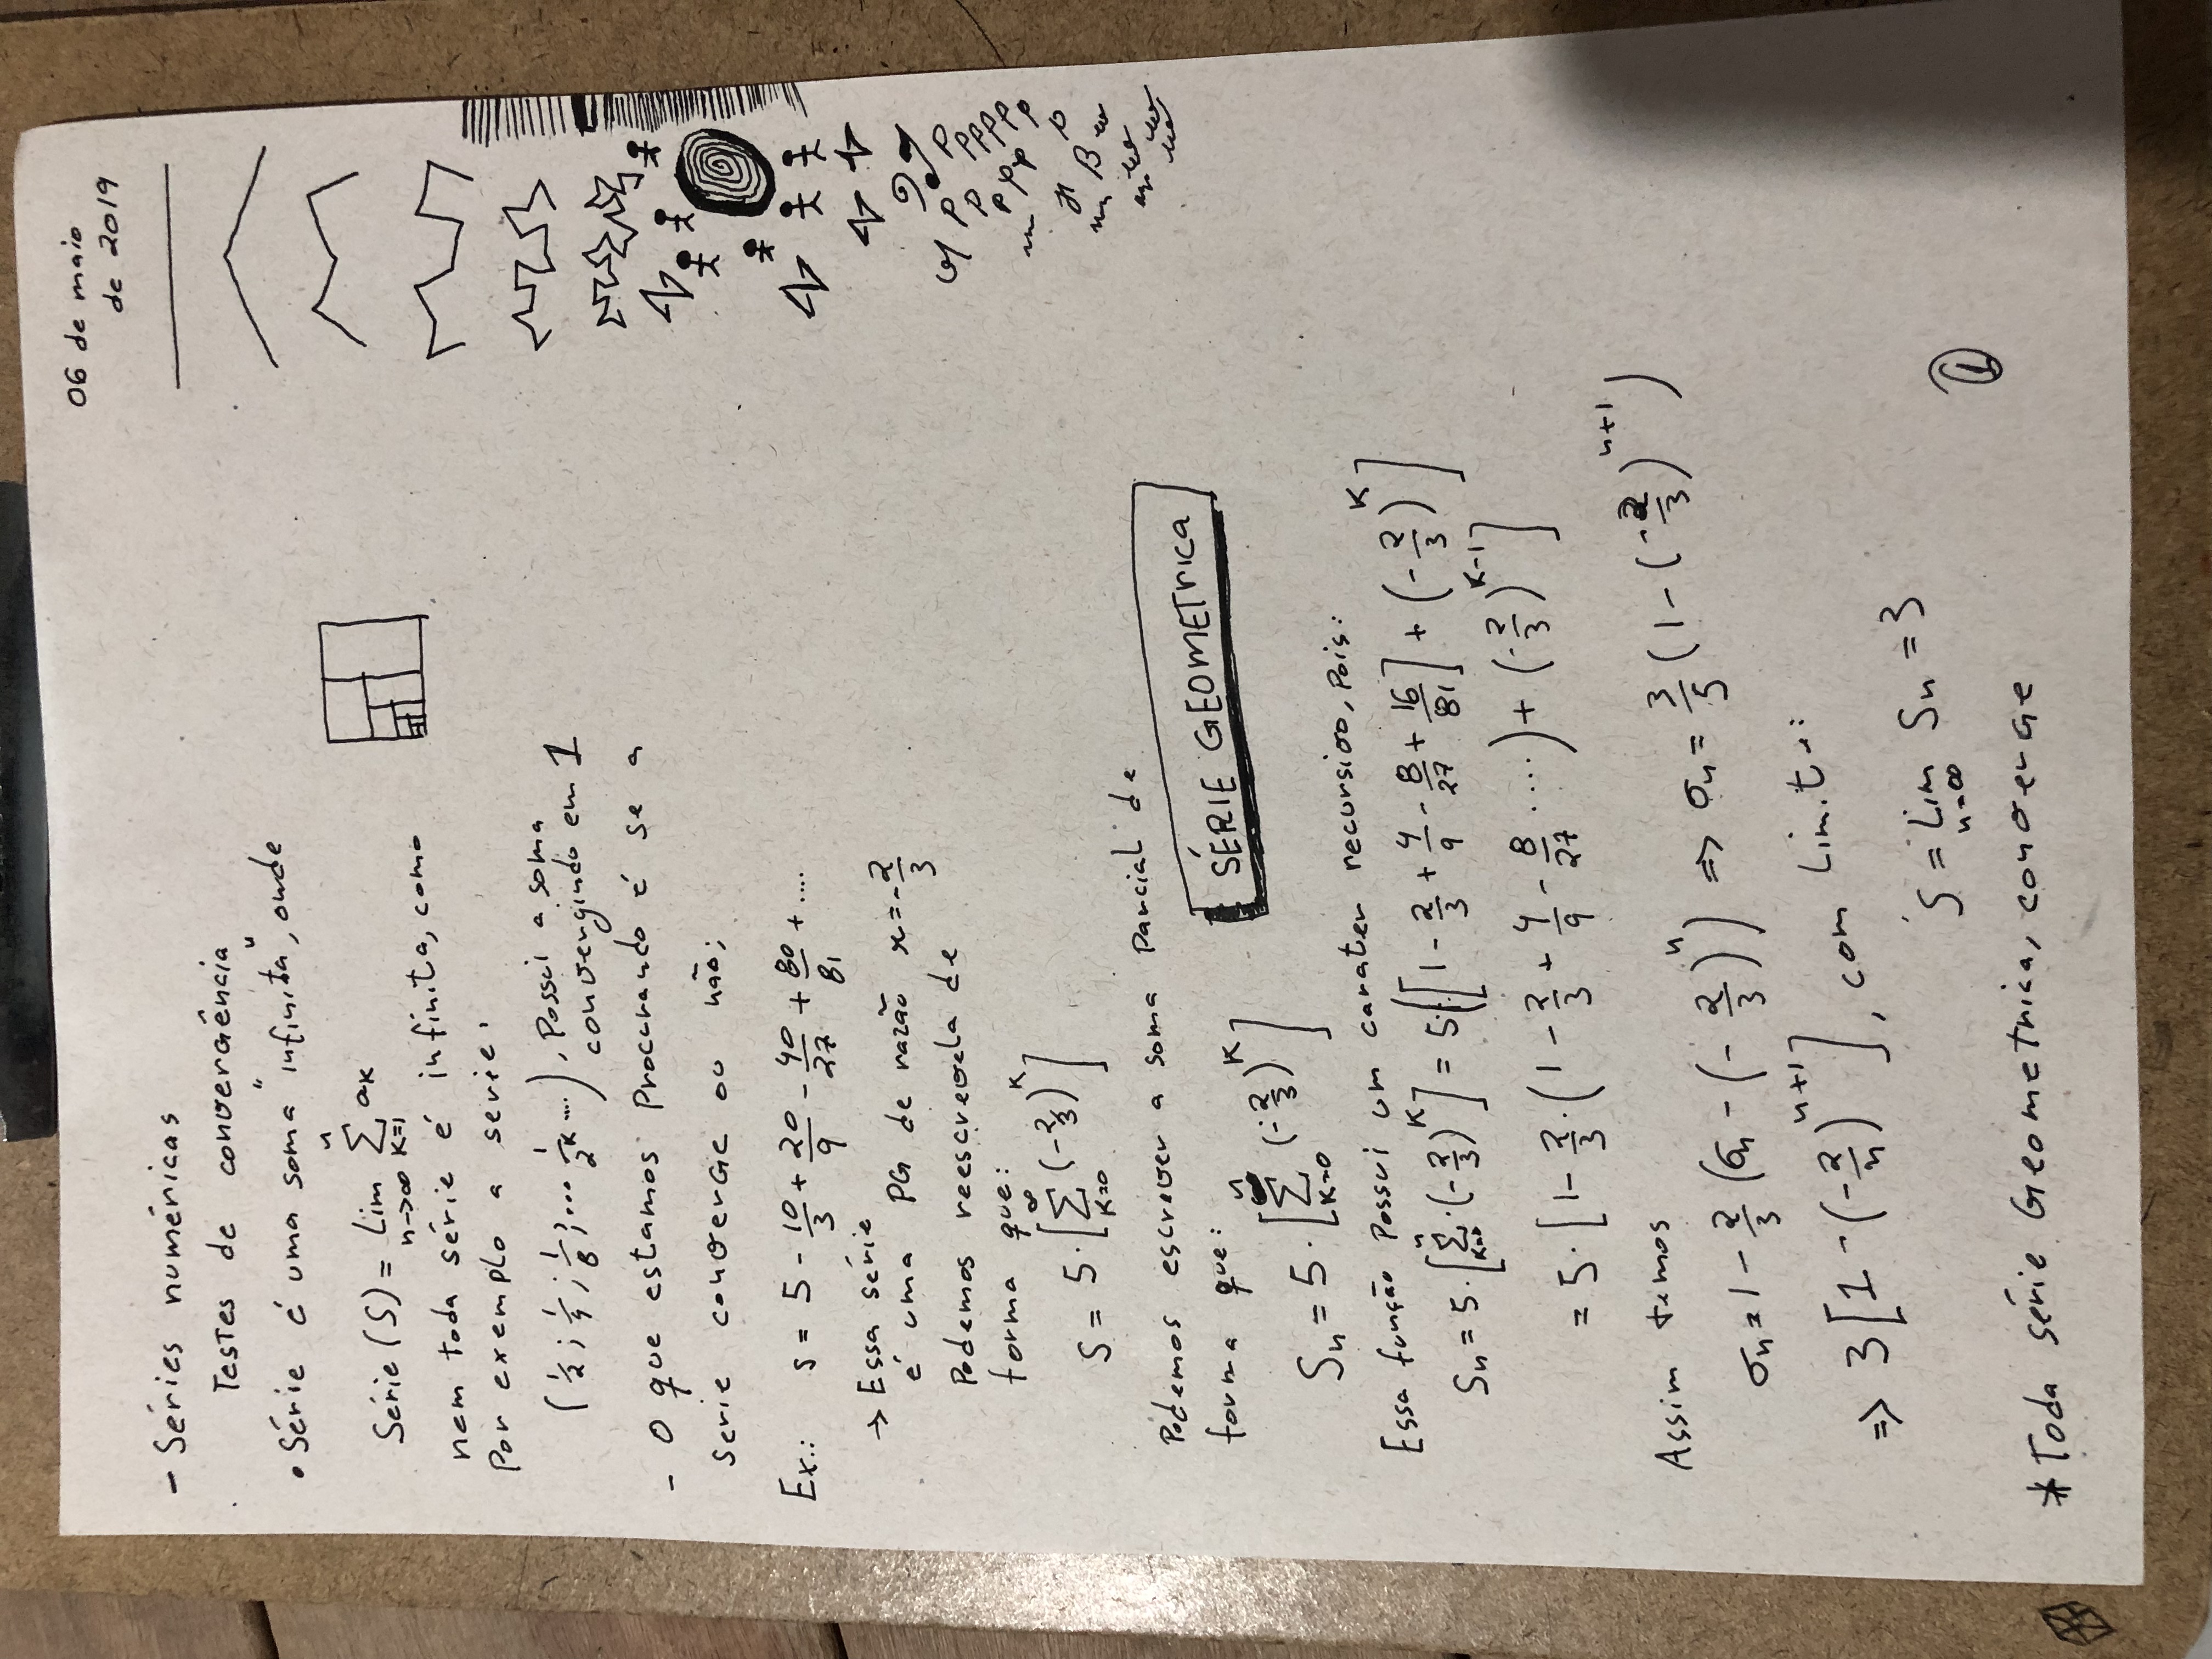 06 de maio
de 2019
- Séries numéricas
Testes de convergência
• Série é uma soma "infinita", onde
Série (S) = Lim n->∞ Σ n K=1 aK
nem toda série é infinita, como
Por exemplo a serie.
(1/2 ; 1/4 ; 1/8 ; ... 1/2^K ....), Possui a soma
convergindo em 1
- O que estamos Procurando é se a
serie converge ou não;
Ex.: s = 5 - 10/3 + 20/9 - 40/27 + 80/81 + ....
→ Essa série
é uma PG de razão x = -2/3
Podemos reescrevela de
forma que:
S = 5 · [Σ ∞ K=0 (-2/3)^K]
Podemos escrever a soma Parcial de
forma que:
SÉRIE GEOMETrica
Sn = 5 · [Σ n K=0 (-2/3)^K]
Essa função Possui um carater recursivo, Pois:
Sn = 5 · [Σ n K=0 · (-2/3)^K] = 5·([1 - 2/3 + 4/9 - 8/27 + 16/81] + (-2/3)^K]
= 5 · [1 - 2/3 · (1 - 2/3 + 4/9 - 8/27 ....) + (-2/3)^K-1]
Assim temos
σn = 1 - 2/3 (σn - (-2/3)^n) => σn = 3/5 (1 - (-2/3)^n+1)
=> 3 [1 - (-2/n)^n+1], com Limite:
S = Lim n=∞ Sn = 3
1
* Toda série Geometrica, converge